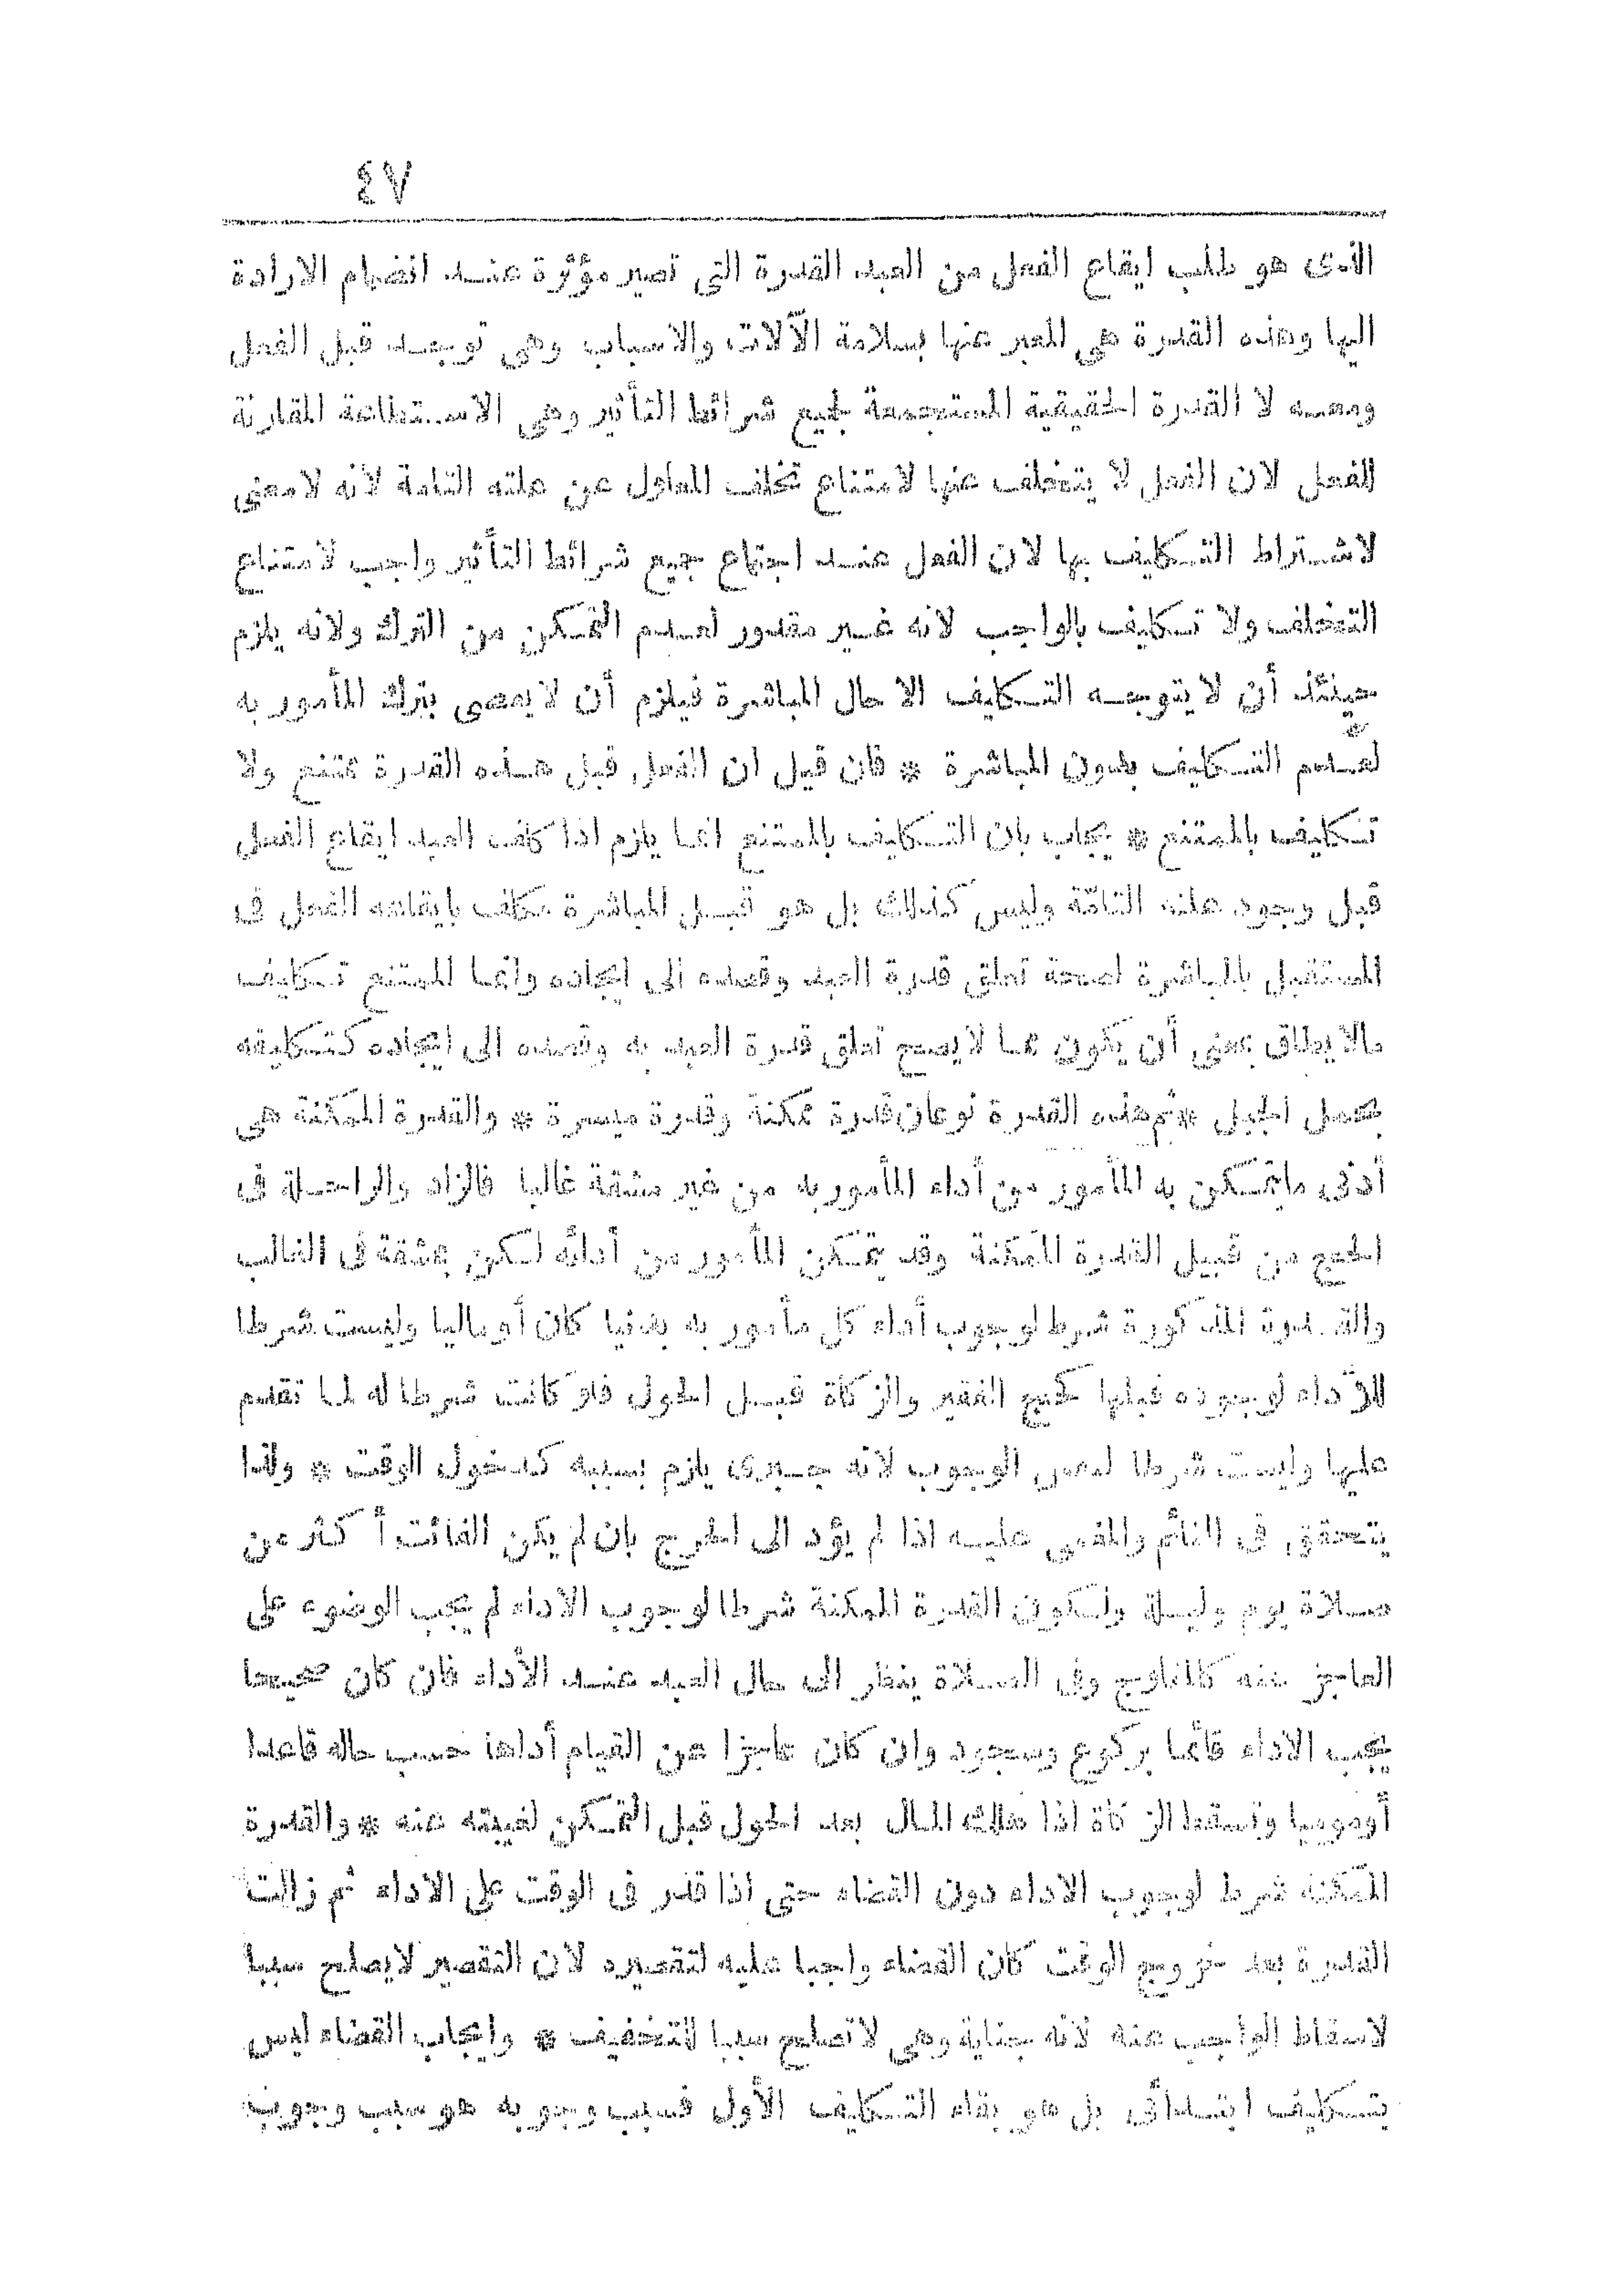 ٤٧
الذى هو طلب ايقاع الفعل من العبد القدرة التى تصير مؤثرة عند انضمام الارادة
اليها وهذه القدرة هى المعبر عنها بسلامة الآلات والاسباب وهى توجد قبل الفعل
ومعه لا القدرة الحقيقية المستجمعة لجميع شرائط التأثير وهى الاستطاعة المقارنة
للفعل لان الفعل لا يتخلف عنها لامتناع تخلف المعلول عن علته التامة لانه لا معنى
لاشتراط التكليف بها لان الفعل عند اجتماع جميع شرائط التأثير واجب لامتناع
التخلف ولا تكليف بالواجب لانه غير مقدور لعدم التمكن من الترك ولانه يلزم
حينئذ أن لا يتوجه التكليف الا حال المباشرة فيلزم أن لا يعصى بترك المأمور به
لعدم التكليف بدون المباشرة * فان قيل ان الفعل قبل هذه القدرة ممتنع ولا
تكليف بالممتنع * يجاب بان التكليف بالممتنع انما يلزم اذا كلف العبد ايقاع الفعل
قبل وجود علته التامّة وليس كذلك بل هو قبل المباشرة مكلف بايقاعه الفعل فى
المستقبل بالمباشرة لصحة تعلق قدرة العبد وقصده الى ايجاده وانما الممتنع تكليف
مالا يطاق بمعنى أن يكون مما لا يصح تعلق قدرة العبد به وقصده الى ايجاده كتكليفه
بحمل الجبل * ثم هذه القدرة نوعان قدرة ممكنة وقدرة ميسرة * والقدرة الممكنة هى
أدنى ما يتمكن به المأمور من أداء المأمور به من غير مشقة غالبا فالزاد والراحلة فى
الحج من قبيل القدرة الممكنة وقد يتمكن المأمور من أدائه لكن بمشقة فى الغالب
والقدرة المذكورة شرط لوجوب أداء كل مأمور به بدنيا كان أو ماليا وليست شرطا
للأداء لوجوده قبلها كحج الفقير والزكاة قبل الحول فلو كانت شرطا له لما تقدم
عليها وليست شرطا لنفس الوجوب لانه جبرى يلزم بسببه كدخول الوقت * ولذا
يتحقق فى النائم والمغمى عليه اذا لم يؤد الى الحرج بان لم يكن الفائت أكثر من
صلاة يوم وليلة ولكون القدرة الممكنة شرطا لوجوب الاداء لم يجب الوضوء على
العاجز عنه كالمفلوج وفى الصلاة ينظر الى حال العبد عند الأداء فان كان صحيحا
يجب الاداء قائما بركوع وسجود وان كان عاجزا عن القيام أداها حسب حاله قاعدا
أو موميا وتسقط الزكاة اذا هلك المال بعد الحول قبل التمكن لغيبته عنه * والقدرة
الممكنة شرط لوجوب الاداء دون القضاء حتى اذا قدر فى الوقت على الاداء ثم زالت
القدرة بعد خروج الوقت كان القضاء واجبا عليه لتقصيره لان التقصير لا يصلح سببا
لاسقاط الواجب عنه لانه جناية وهى لا تصلح سببا للتخفيف * وايجاب القضاء ليس
بتكليف ابتدائى بل هو بقاء التكليف الأول فسبب وجوبه هو سبب وجوب